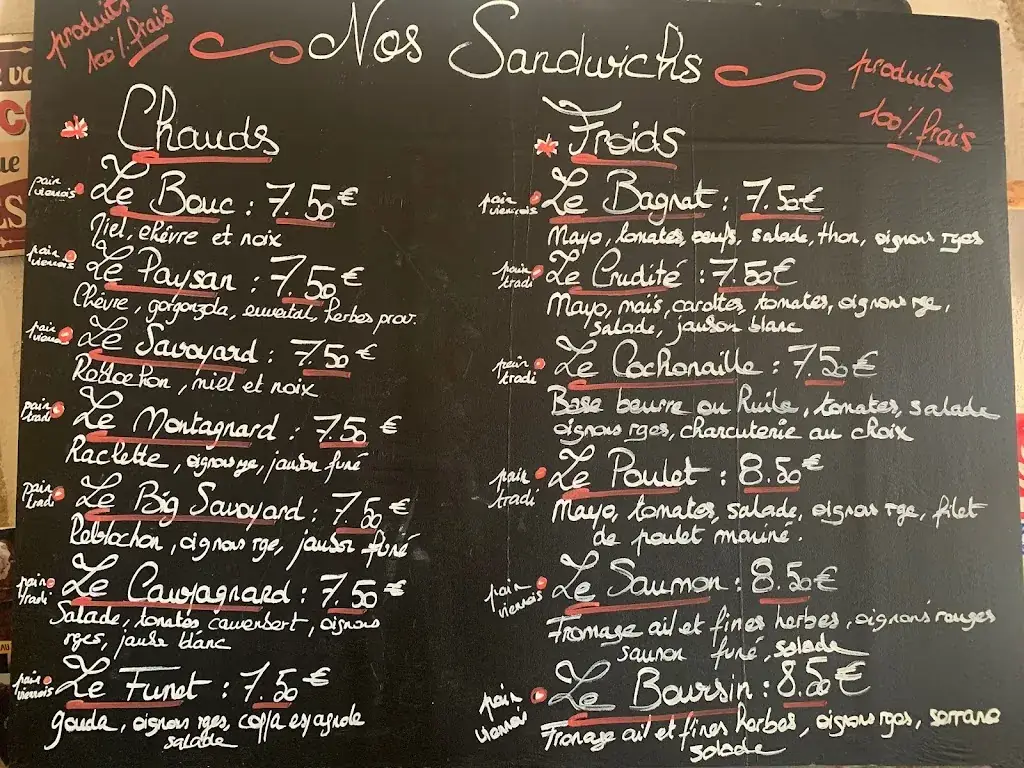 produits
100% frais
Nos Sandwichs
produits
100% frais
Chauds
pain
viennois
Le Bouc : 7.50€
Miel, chèvre et noix
pain
viennois
Le Paysan : 7.50€
Chèvre, gorgonzola, emmental, herbes prov.
pain
viennois
Le Savoyard : 7.50€
Reblochon, miel et noix
pain
tradi
Le Montagnard : 7.50€
Raclette, oignons rge, jambon fumé
pain
tradi
Le Big Savoyard : 7.50€
Reblochon, oignons rge, jambon fumé
pain
tradi
Le Campagnard : 7.50€
Salade, tomates camenbert, oignons
rges, jambon blanc
pain
viennois
Le Funet : 7.50€
gouda, oignons rges, coppa espagnole
salade
Froids
pain
viennois
Le Bagnat : 7.50€
Mayo, tomates, oeufs, salade, thon, oignons rges
pain
tradi
Le Crudité : 7.50€
Mayo, maïs, carottes, tomates, oignons rge,
salade, jambon blanc
pain
tradi
Le Cochonaille : 7.50€
Base beurre ou huile, tomates, salade
oignons rges, charcuterie au choix
pain
tradi
Le Poulet : 8.50€
Mayo, tomates, salade, oignons rge, filet
de poulet mariné.
pain
viennois
Le Saumon : 8.50€
Fromage ail et fines herbes, oignons rouges
saumon fumé, salade
pain
viennois
Le Boursin : 8.50€
Fromage ail et fines herbes, oignons rges, serrano
salade